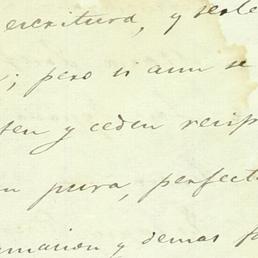 escritura, y serle
; pero si aun se
sen y ceden recip
n pura, perfect
macion y demas fo